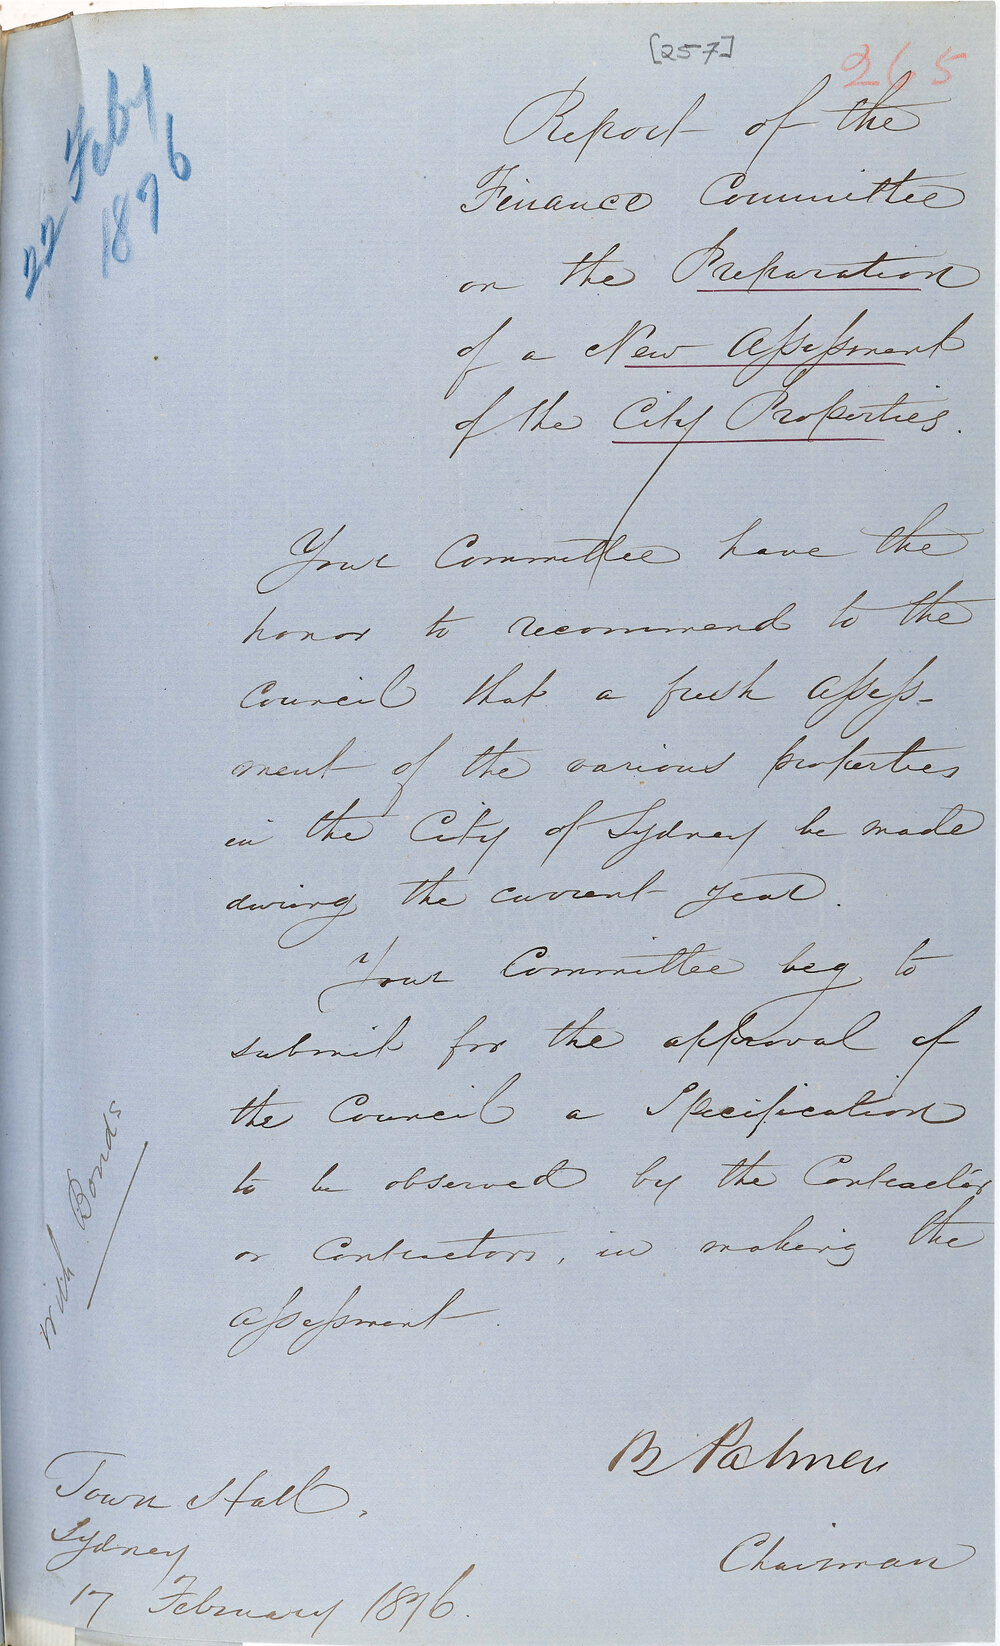 [257]
265
22 Feby
1876
Report of the
Finance Committee
on the Preparation
of a New Assessment
of the City Properties.
Your Committee have the
honor to recommend to the
Council that a fresh Assess-
ment of the various properties
in the City of Sydney be made
during the current year.
Your Committee beg to
submit for the approval of
the Council a Specification
to be observed by the Contractor
or Contractors, in making the
Assessment.
with Bonds
B Palmer
Chairman
Town Hall,
Sydney
17 February 1876.